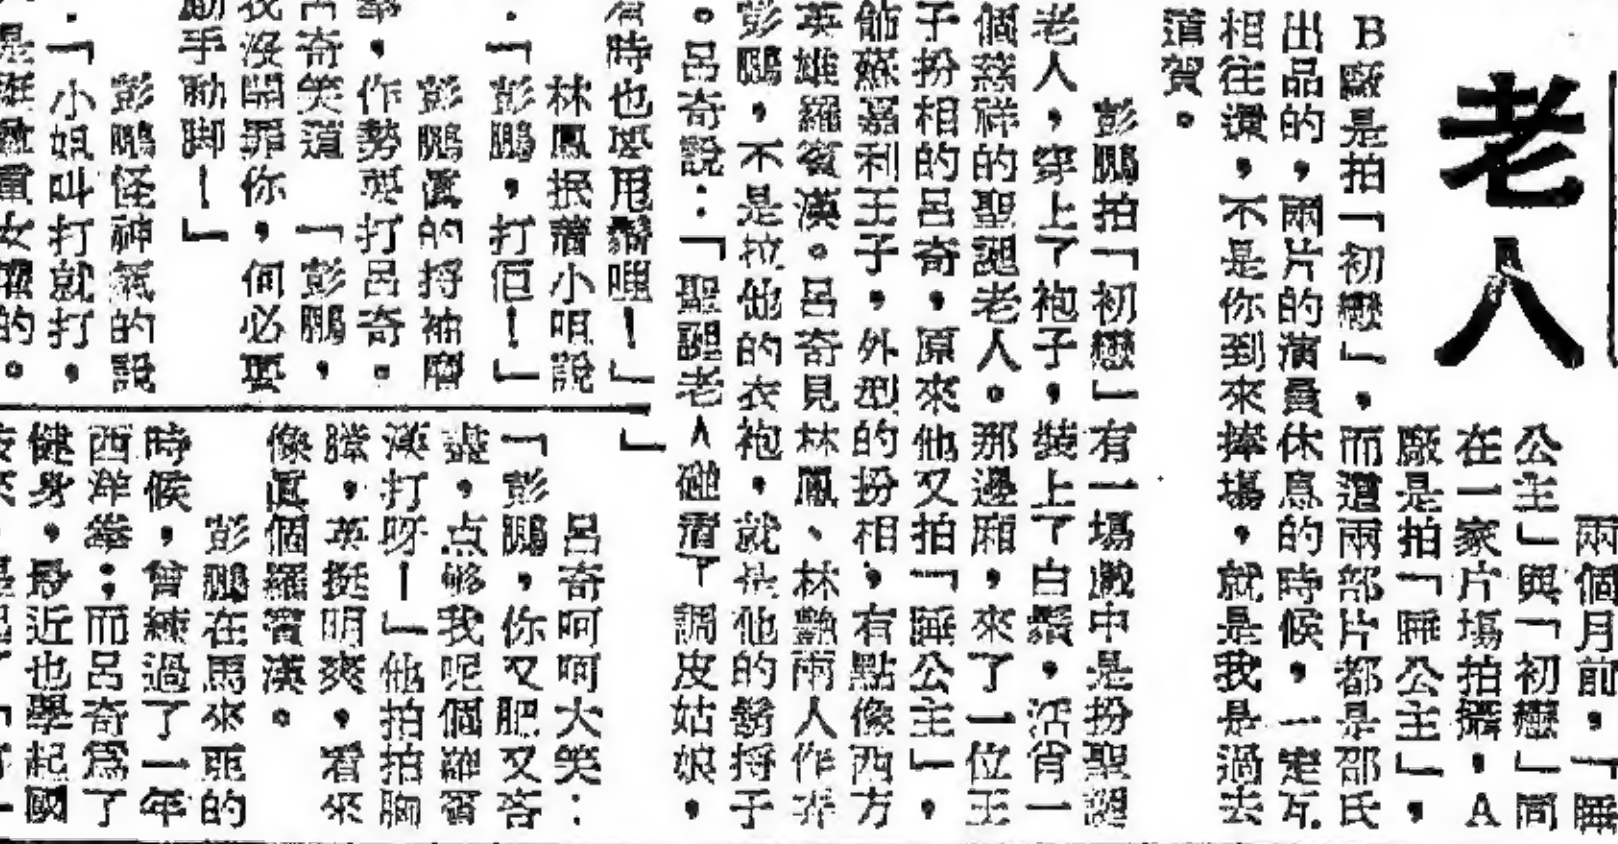 老人
兩個月前，「睡
公主」與「初戀」同
在一家片塲拍攝，A
廠是拍「睡公主」，
B廠是拍「初戀」，而這兩部片都是邵氏
出品的，兩片的演員休息的時候，一定互
相往還，不是你到來捧塲，就是我是過去
道賀。
彭鵬拍「初戀」有一塲戲中是扮聖誕
老人，穿上了袍子，裝上了白鬚，活肖一
個慈祥的聖誕老人。那邊廂，來了一位王
子扮相的呂奇，原來他又拍「睡公主」，
飾蘇嘉利王子，外型的扮相，有點像西方
英雄羅賓漢。呂奇見林鳳、林艷兩人作弄
彭鵬，不是拉他的衣袍，就是他的鬍捋子
。呂奇說：「聖誕老人碰着了調皮姑娘，
有時也要甩鬚哩！」
林鳳抿着小咀說
：「彭鵬，打佢！」
彭鵬真的捋袖磨
拳，作勢要打呂奇。
呂奇笑道「彭鵬，
我沒開罪你，何必要
動手動脚！」
彭鵬怪神氣的說
：「小姐叫打就打，
」
呂奇呵呵大笑：
「彭鵬，你又肥又
，点够我呢個羅賓
漢打呀！」他拍拍胸
膛，英挺明爽，看來
像真個羅賓漢。
彭鵬在馬來亞的
時候，曾練過了一年
西洋拳；而呂奇爲了
健身，最近也學起國